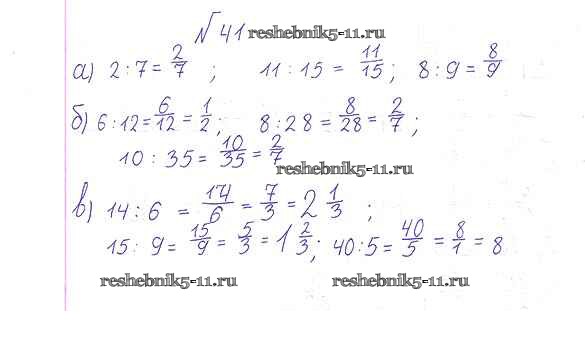 № 41 reshebnik5-11.ru
а) 2 : 7 = 2/7 ; 11 : 15 = 11/15 ; 8 : 9 = 8/9
б) 6 : 12 = 6/12 = 1/2 ; 8 : 28 = 8/28 = 2/7 ;
10 : 35 = 10/35 = 2/7
reshebnik5-11.ru
в) 14 : 6 = 14/6 = 7/3 = 2 1/3 ;
15 : 9 = 15/9 = 5/3 = 1 2/3 ; 40 : 5 = 40/5 = 8/1 = 8
reshebnik5-11.ru reshebnik5-11.ru